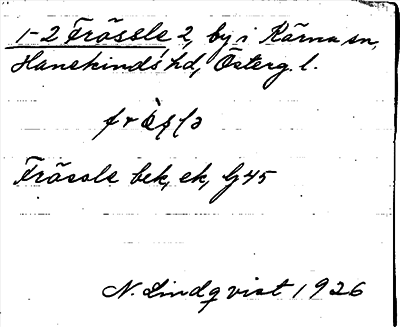 1-2 Frössle 2, by i Kärna sn,
Hanekinds hd, Österg. l.
Frössle bek, ek, G45
N. Lindqvist 1926